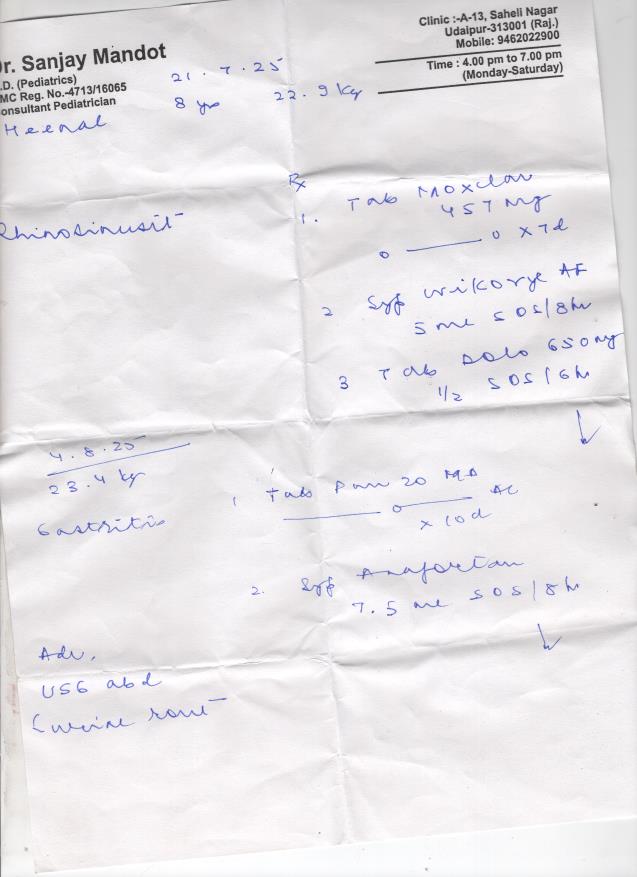 Dr. Sanjay Mandot
.D. (Pediatrics)
MC Reg. No.-4713/16065
onsultant Pediatrician
Clinic :-A-13, Saheli Nagar
Udaipur-313001 (Raj.)
Mobile: 9462022900
Time : 4.00 pm to 7.00 pm
(Monday-Saturday)
21.7.25
8 yrs 22.9 kg
Heenal
Rhinosinusit
Rx
1. Tab Moxclav
457 mg
0 —— 0 x 7d
2 Syp Wikoryl AF
5 ml SOS/8hr
3 Tab Dolo 650 mg
1/2 SOS/6h
4.8.25
23.4 kg
Gastritis
1 Tab Pan 20 MD
—— 0 —— AC
x 10d
2. Syp Anafortan
7.5 ml SOS/8hr
Adv.
USG abd
Urine rout